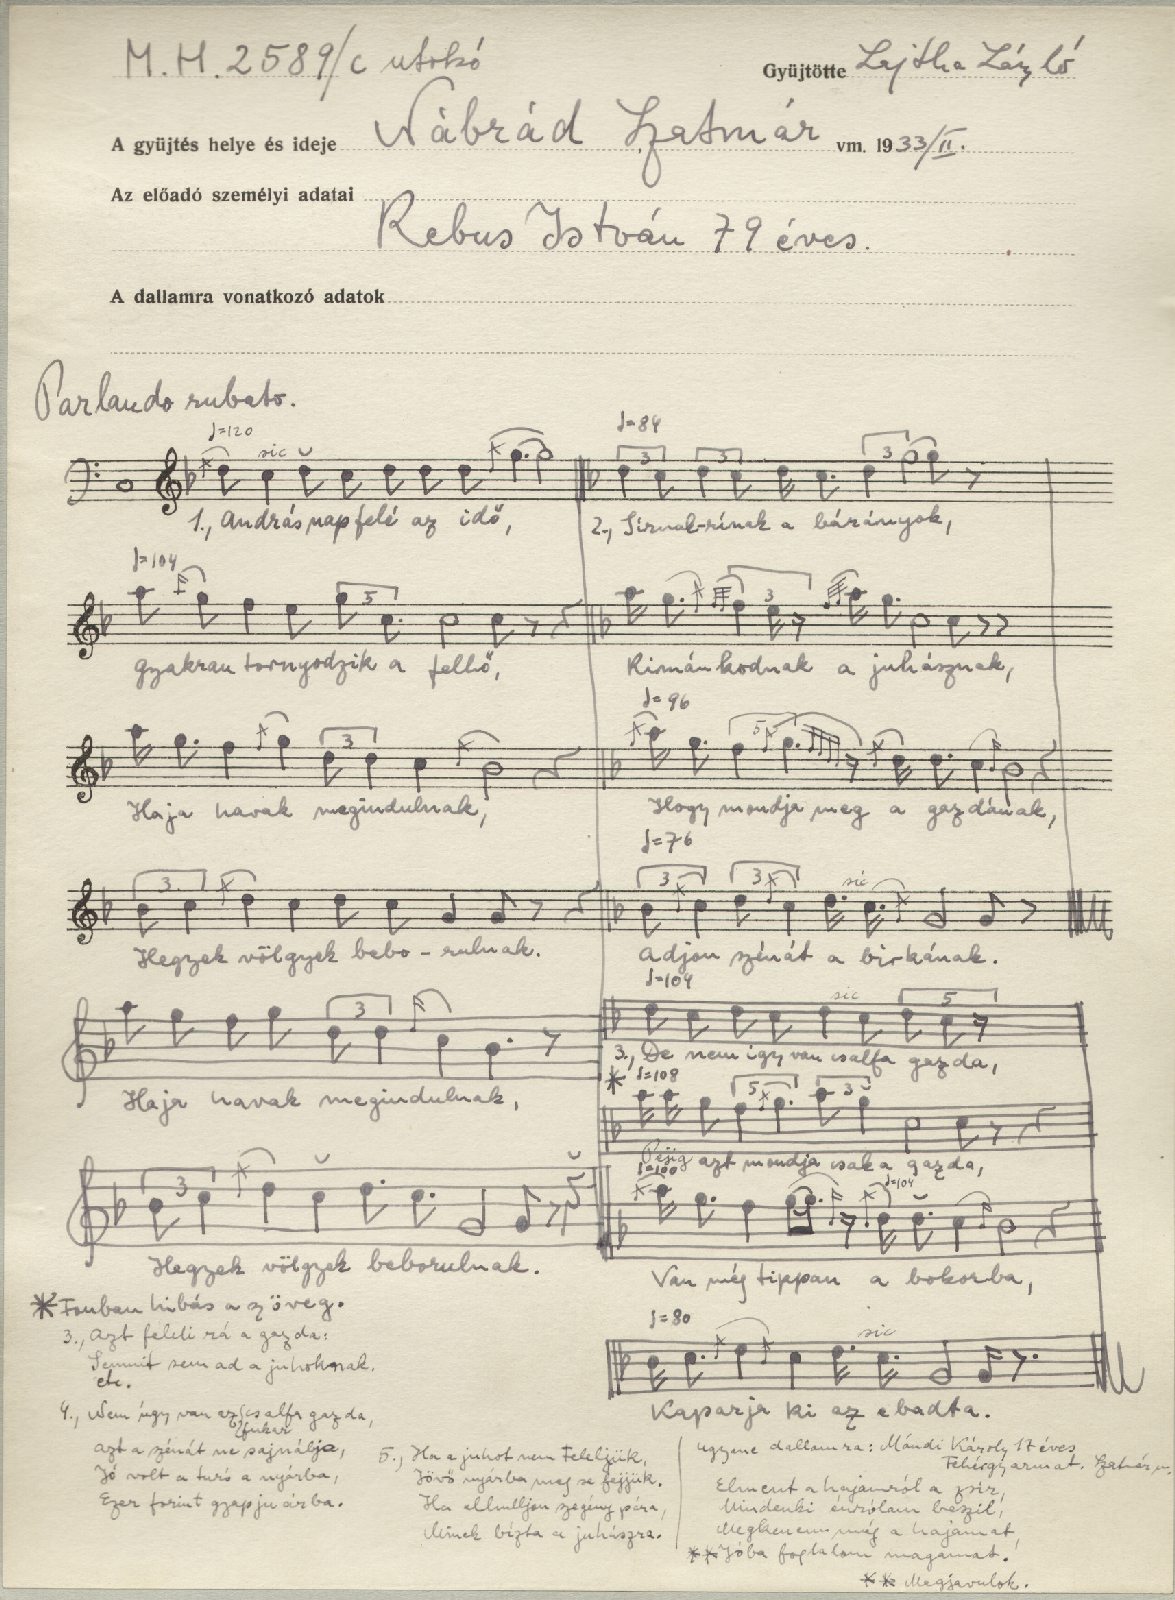 M.H. 2589/c utolsó
Gyüjtötte Lajtha László
A gyüjtés helye és ideje Nábrád Szatmár vm. 1933/II.
Az előadó személyi adatai
Rebus István 79 éves.
A dallamra vonatkozó adatok
Parlando rubato.
♩=120 sic
♩=84 3 3 3
1., András nap felé az idő,
2., Sírnak-rínak a bárányok,
♩=104 5
3
gyakran tornyodzik a felhő,
Rimánkodnak a juhásznak,
♩=96
3
5
Haja havak megindulnak,
Hogy mondja meg a gazdának,
♩=76
3
3 3 sic
Hegyek völgyek bebo-rulnak.
Adjon szénát a birkának.
♩=104
3
sic 5
3., De nem igy van csalfa gazda,
* ♩=108
5 3
Haja havak megindulnak,
Pejig azt mondja csak a gazda,
♩=100 ♩=104
3
Hegyek völgyek beborulnak.
Van még tippan a bokorba,
* Fonban hibás a szöveg.
♩=80 sic
3., Azt feleli rá a gazda:
Semmit sem ad a juhoknak.
etc.
Kaparja ki az ebadta.
4., Nem úgy van az csalfa gazda,
fukar
Azt a szénát ne sajnálja,
Jó volt a turó a nyárba,
Ezer forint gyapju árba.
5., Ha a juhot nem teleljük,
Jövő nyárba meg se fejjük.
Ha elhulljon szegény pára,
Minek bízta a juhászra.
ugyane dallamra: Mándi Károly 17 éves
Fehérgyarmat. Szatmár m.
Elment a hájamról a zsir,
Mindenki énrólam beszil,
Megkenem még a hajamat,
** Jóba foglalom magamat.
** Megjavulok.